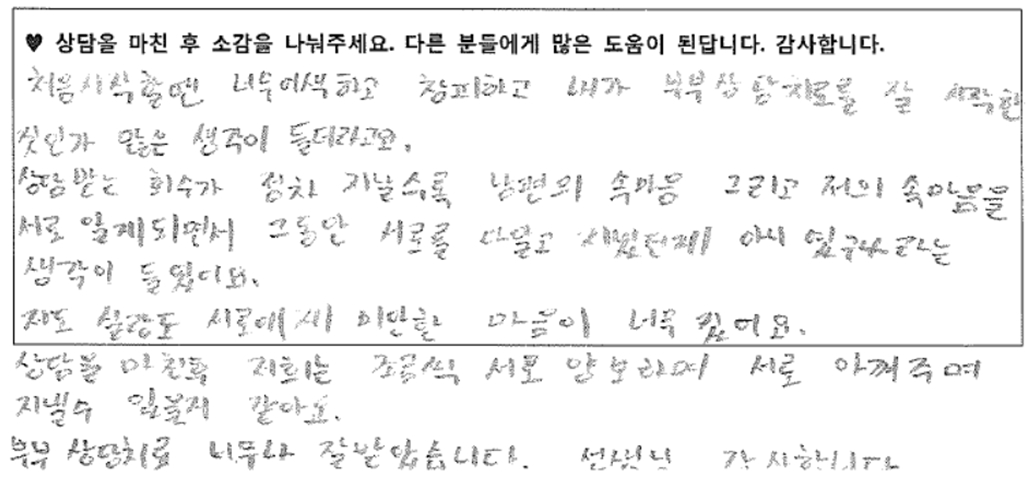 ♥ 상담을 마친 후 소감을 나눠주세요. 다른 분들에게 많은 도움이 된답니다. 감사합니다.
처음시작할땐 너무어색하고 창피하고 내가 부부상담치료를 잘 시작한
것인가 많은 생각이 들더라고요.
상담받는 회수가 점차 지날수록 남편의 속마음 그리고 저의 속마음을
서로 알게되면서 그동안 서로를 다알고 아니 였구나라는
생각이 들었어요.
저도 신랑도 서로에게 미안한 마음이 너무 컸어요.
상담을 마친후 저희는 조금씩 서로 양보하며 서로 아껴주며
지낼수 있을거 같아요.
부부상담치료 너무나 잘받았습니다. 선생님 감사합니다